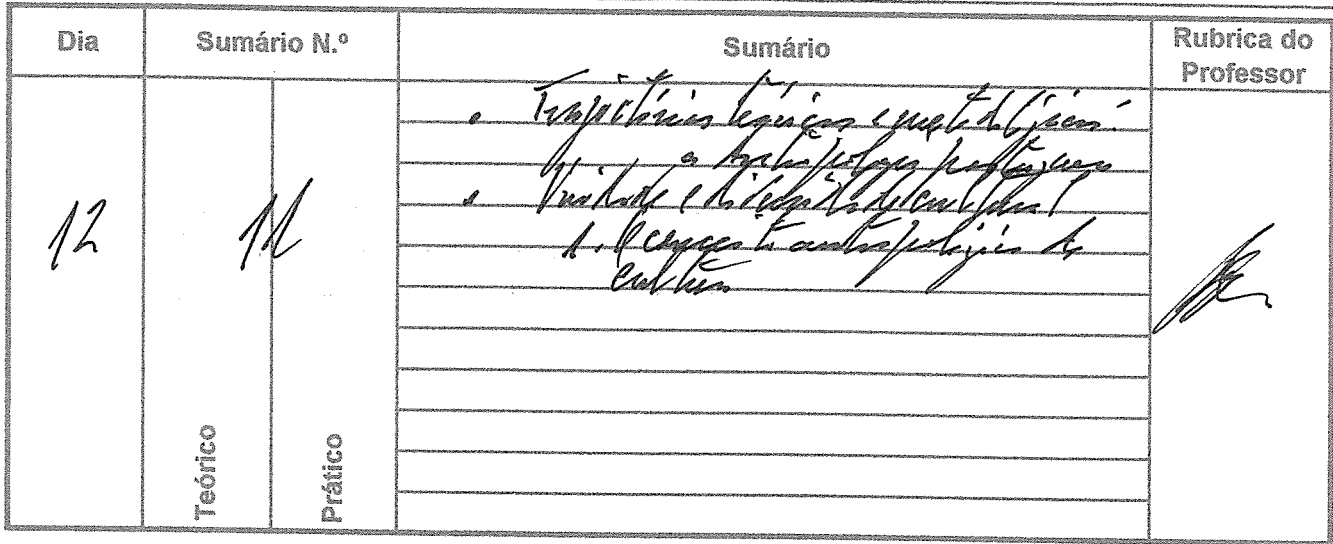 Dia Sumário N.º Sumário Rubrica do Professor
12 11
• Trajectórias teóricas e metodológicas:
a Antropologia portuguesa
• Unidade e diversidade cultural
1. O conceito antropológico de
cultura
Teórico Prático